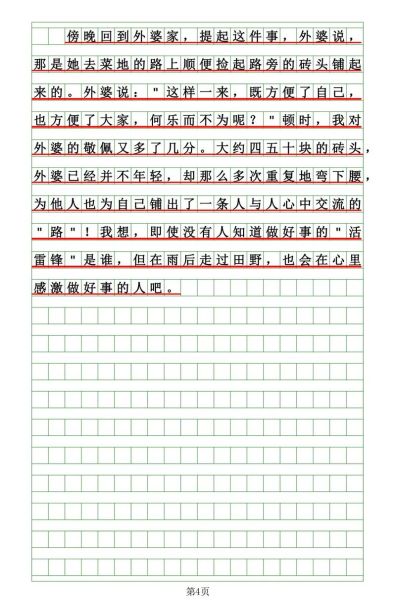 傍晚回到外婆家，提起这件事，外婆说，
那是她去菜地的路上顺便捡起路旁的砖头铺起
来的。外婆说："这样一来，既方便了自己，
也方便了大家，何乐而不为呢？"顿时，我对
外婆的敬佩又多了几分。大约四五十块的砖头，
外婆已经并不年轻，却那么多次重复地弯下腰，
为他人也为自己铺出了一条人与人心中交流的
"路"！我想，即使没有人知道做好事的"活
雷锋"是谁，但在雨后走过田野，也会在心里
感激做好事的人吧。
第4页